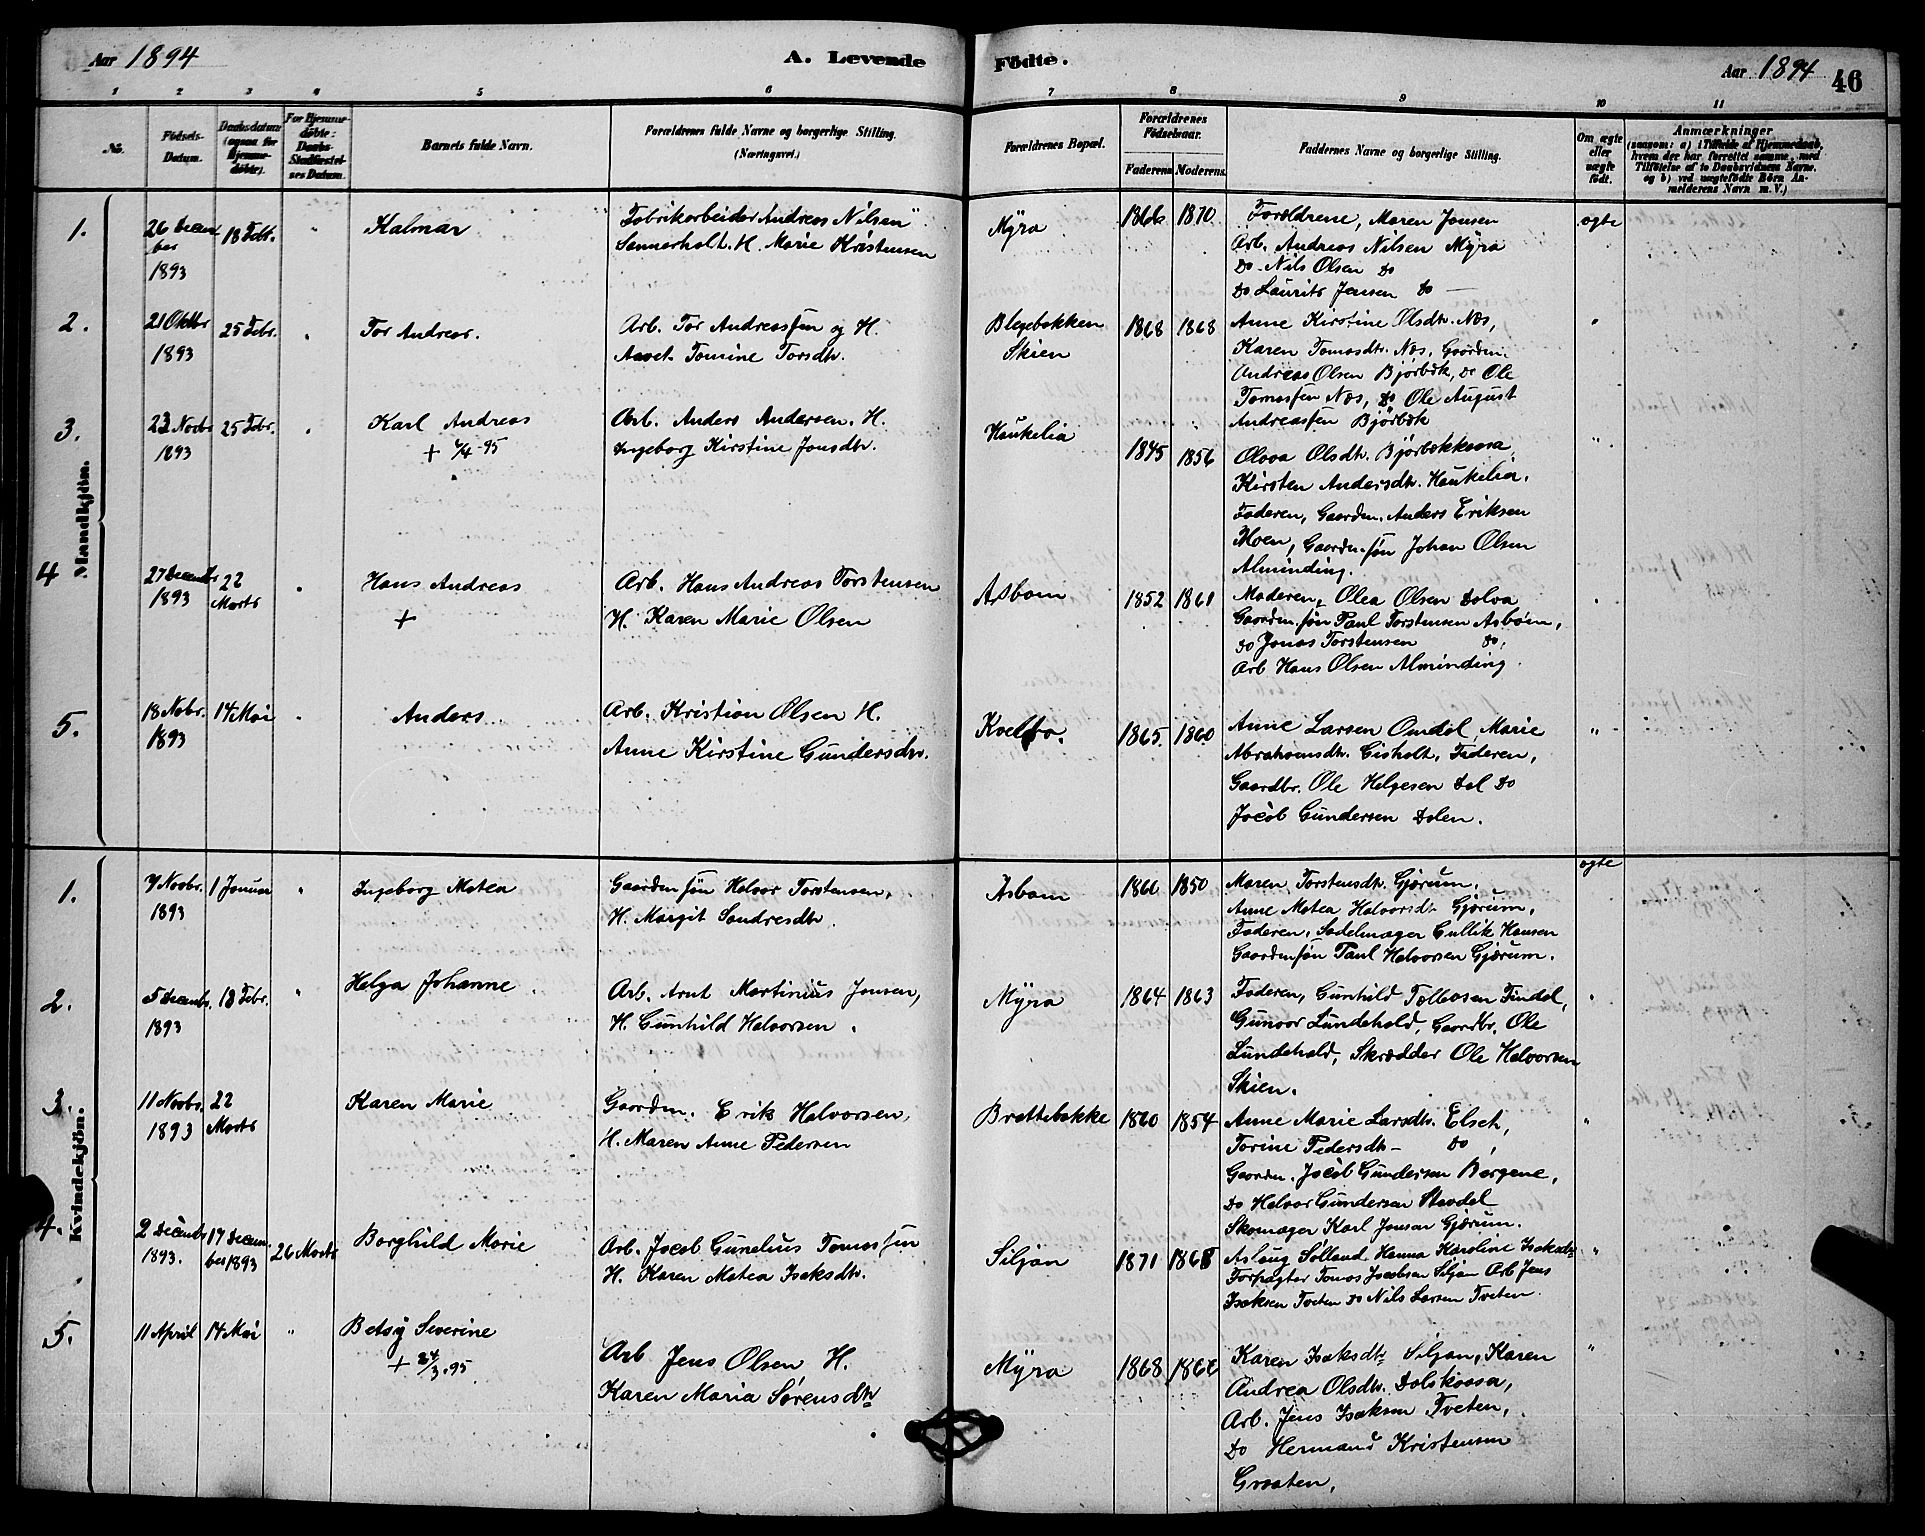 Aar 1894
A. Levende
Födte.
Aar 1894
46
1 2 3 4 5 6 7 8 9 10 11
No.
Födsels-Datum.
Daabsdatum (ogsaa for Hjemme-döbte).
For Hjemme-döbte: Daabs-Stadfæstel-ses Datum.
Barnets fulde Navn.
Forældrenes fulde Navne og borgerlige Stilling.
(Næringsvei.)
Forældrenes Bopæl.
Forældrenes Födselsaar.
Faderens Moderens.
Faddernes Navne og borgerlige Stilling.
Om ægte eller uægte födt.
Anmærkninger
(saasom: a) i Tilfælde af Hjemmedaab, hvem der har forrettet samme, med Tilföielse af to Daabsvidners Navne, og b) ved uægtefödte Börn Anmelderens Navn m. V.)
Mandkjön.
1. 26 Decem
ber
1893
18 Febr.
"
Kalmar
Fabrikarbeider Andreas Nilsen
Sannerholt. H. Marie Kristensen
Myra
1866 1870
Forældrene, Maren Jensen
Arb. Andreas Nilsen Myra
Do. Nils Olsen Do
Do Laurits Jensen Do
ægte
2. 21 Oktbr
1893
25 Febr.
"
Tor Andreas.
Arb. Tor Andreassen og H.
Aaset Tomine Torsdtr.
Blegebakken
Skien
1868 1868
Anne Kirstine Olsdtr. Næs,
Karen Tomasdtr. Næs, Gaardm.
Andreas Olsen Bjørbæk, Do Ole
Tomassen Næs, Do Ole August
Andreassen Bjørbæk
"
3. 23 Novbr
1893
25 Febr.
"
Karl Andreas
+ 4/4-95
Arb. Anders Andersen. H.
Ingeborg Kirstine Jonsdtr.
Haukelia
1845 1856
Olava Olsdtr. Bjørbækkaasa
Kirsten Andersdtr. Haukelia.
Faderen, Gaardm. Anders Eriksen
Moen, Gaardm.søn Johan Olsen
Alminding.
"
4 27 Decembr
1893
22
Marts
"
Hans Andreas
+
Arb. Hans Andreas Torstensen
H. Karen Marie Olsen
Asbøm
1852 1861
Moderen, Olea Olsen Dolva
Gaardm.søn Paul Torstensen Asbøm,
Do Jonas Torstensen Do,
Arb Hans Olsen Alminding.
"
5. 18 Nobr.
1893
14 Mai
"
Anders
Arb. Kristian Olsen H.
Anne Kirstine Gundersdtr.
1865. 1860
Anne Larsen Omdal, Marie
Abrahamsdtr. Gisholt, Faderen,
Gaardbr. Ole Helgesen Dal Do
Jacob Gundersen Dalen.
"
Kvindekjön.
1. 7 Novbr.
1893
1 Januar
"
Ingeborg Matea
Gaardmsøn Halvor Torstensen,
H. Margit Sandresdtr.
Asbøm
1860 1850
Maren Torstensdtr. Gjærum,
Anne Matea Halvorsdtr Gjørum,
Faderen, Sadelmager Gullik Hansen
Gaardmsøn Paul Halvorsen Gjærum.
ægte
2. 5 Decembr.
1893
18 Febr.
"
Helga Johanne
Arb. Arnt Martinius Jensen,
H. Gunhild Halvorsen.
Myra
1864 1863
Faderen, Gunhild Tollevsen Findal,
Gunvor Lundehald, Gaardbr. Ole
Lundehald, Skrædder Ole Halvorsen
Skien.
"
3. 11 Novbr.
1893
22
Marts
Karen Marie
Gaardm. Erik Halvorsen,
H. Maren Anne Pedersen
Brattebakke
1860 1854
Anne Marie Larsdtr. Elseth,
Torine Pedersdtr - Do,
Gaardm. Jacob Gundersen Bergene,
Do Halvor Gundersen Stavdal
Skomager Karl Jensen Gjærum.
"
4. 2 Decembr
1893.
17 Decem
ber 1893
26 Marts
Borghild Marie
Arb. Jacob Gunelius Tomassen
H. Karen Matea Isaksdtr.
Siljan
1871 1868
Aslaug Sølland Hanna Karoline Isaksdtr
Forpagter Tomas Jacobsen Siljan Arb Jens
Isaksen Tveten Do Nils Larsen Tveten.
"
5. 11 April
14 Mai
"
Betsy Severine
+ 24/3.95
Arb Jens Olsen H.
Karen Maria Sørensdtr
Myra
1868
Karen Isaksdtr. Siljan, Karen
Andrea Olsdtr. Dalskaasa,
Arb. Jens Isaksen Tveten,
Do Hermand Kristensen
Graaten.
"